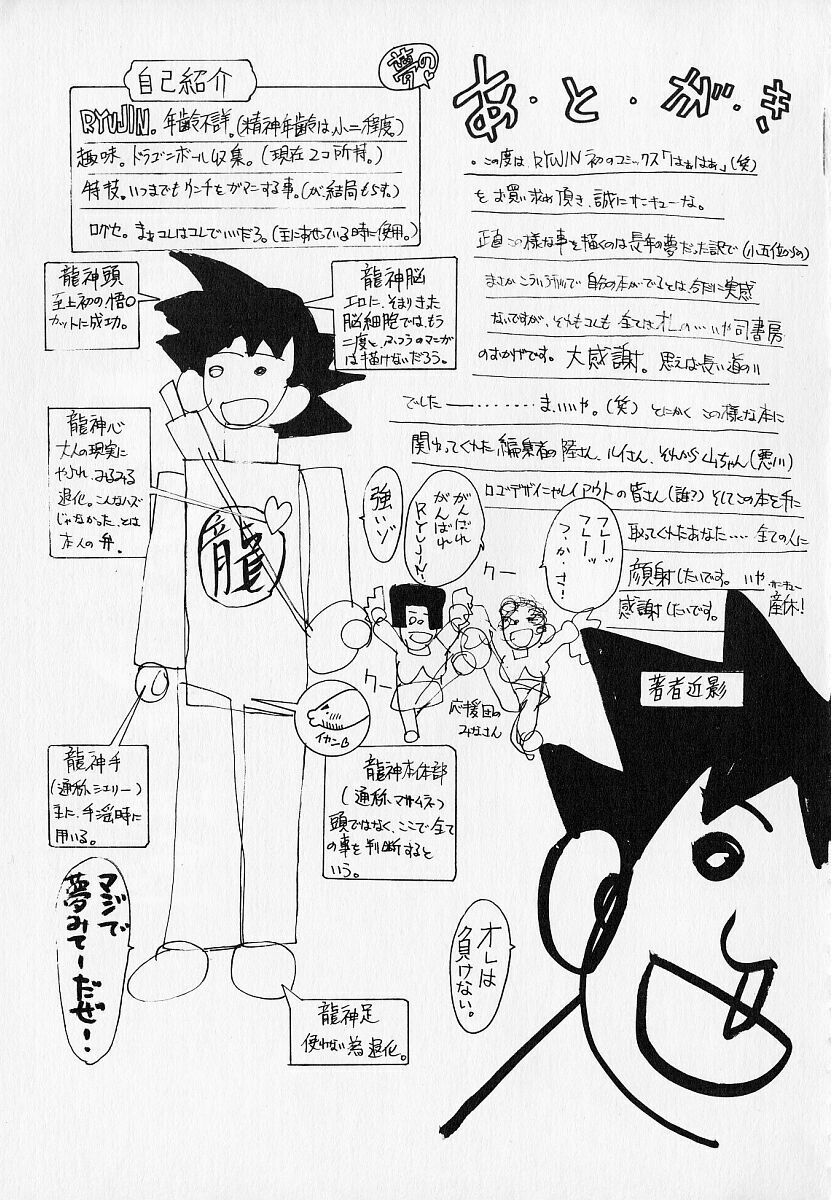 あ・と・が・き
・この度は、RYUJIN初のコミックス「はぁはぁ。」(笑)
をお買い求め頂き、誠にサンキューな。
正直この様な事を描くのは長年の夢だった訳で(小五位からの)
まさかこういうカタチで自分の本がでるとは今だに実感
ないですが、それもコレも全ては
いや司書房
のおかげです。大感謝。思えば長い道のり
でした―………ま、いいや。(笑)とにかくこの様な本に
関わってくれた編集者の陸さん、ルイさん、それから山ちゃん(悪川)
ロゴデザインやレイアウトの皆さん(誰?)そしてこの本を手に
取ってくれたあなた……全ての人に
顔射したいです。いや、サンキュー
感謝したいです。産休!
夢の♡
自己紹介
RYUJIN。年齢不詳。(精神年齢は、小二程度)
趣味。ドラゴンボール収集。(現在2コ所持。)
特技。いつまでもウンチをガマンする事。(が、結局もらす。)
口グセ。まぁコレはコレでいいだろ。(主にあせっている時に使用。)
龍神頭
至上初の悟〇
カットに成功。
龍神脳
エロに、そまりきった
脳細胞では、もう
二度と、ふつうのマンガ
は描けないだろう。
龍神心
大人の現実に
やぶれ、みるみる
退化。こんなハズ
じゃなかった、とは
本人の弁。
龍
強いゾ
がんばれ
がんばれ
RYUJIN!
フレーッ
フレーッ
つ・か・さ!
クー
クー
応援団の
みなさん
著者近影
イカンβ
龍神手
(通称シェリー)
主に、手淫時に
用いる。
龍神本体部
(通称、マサムネ)
頭ではなく、ここで全て
の事を判断すると
いう。
マジで
夢みてーだぜ!
オレは
負けない。
龍神足
使わない為退化。